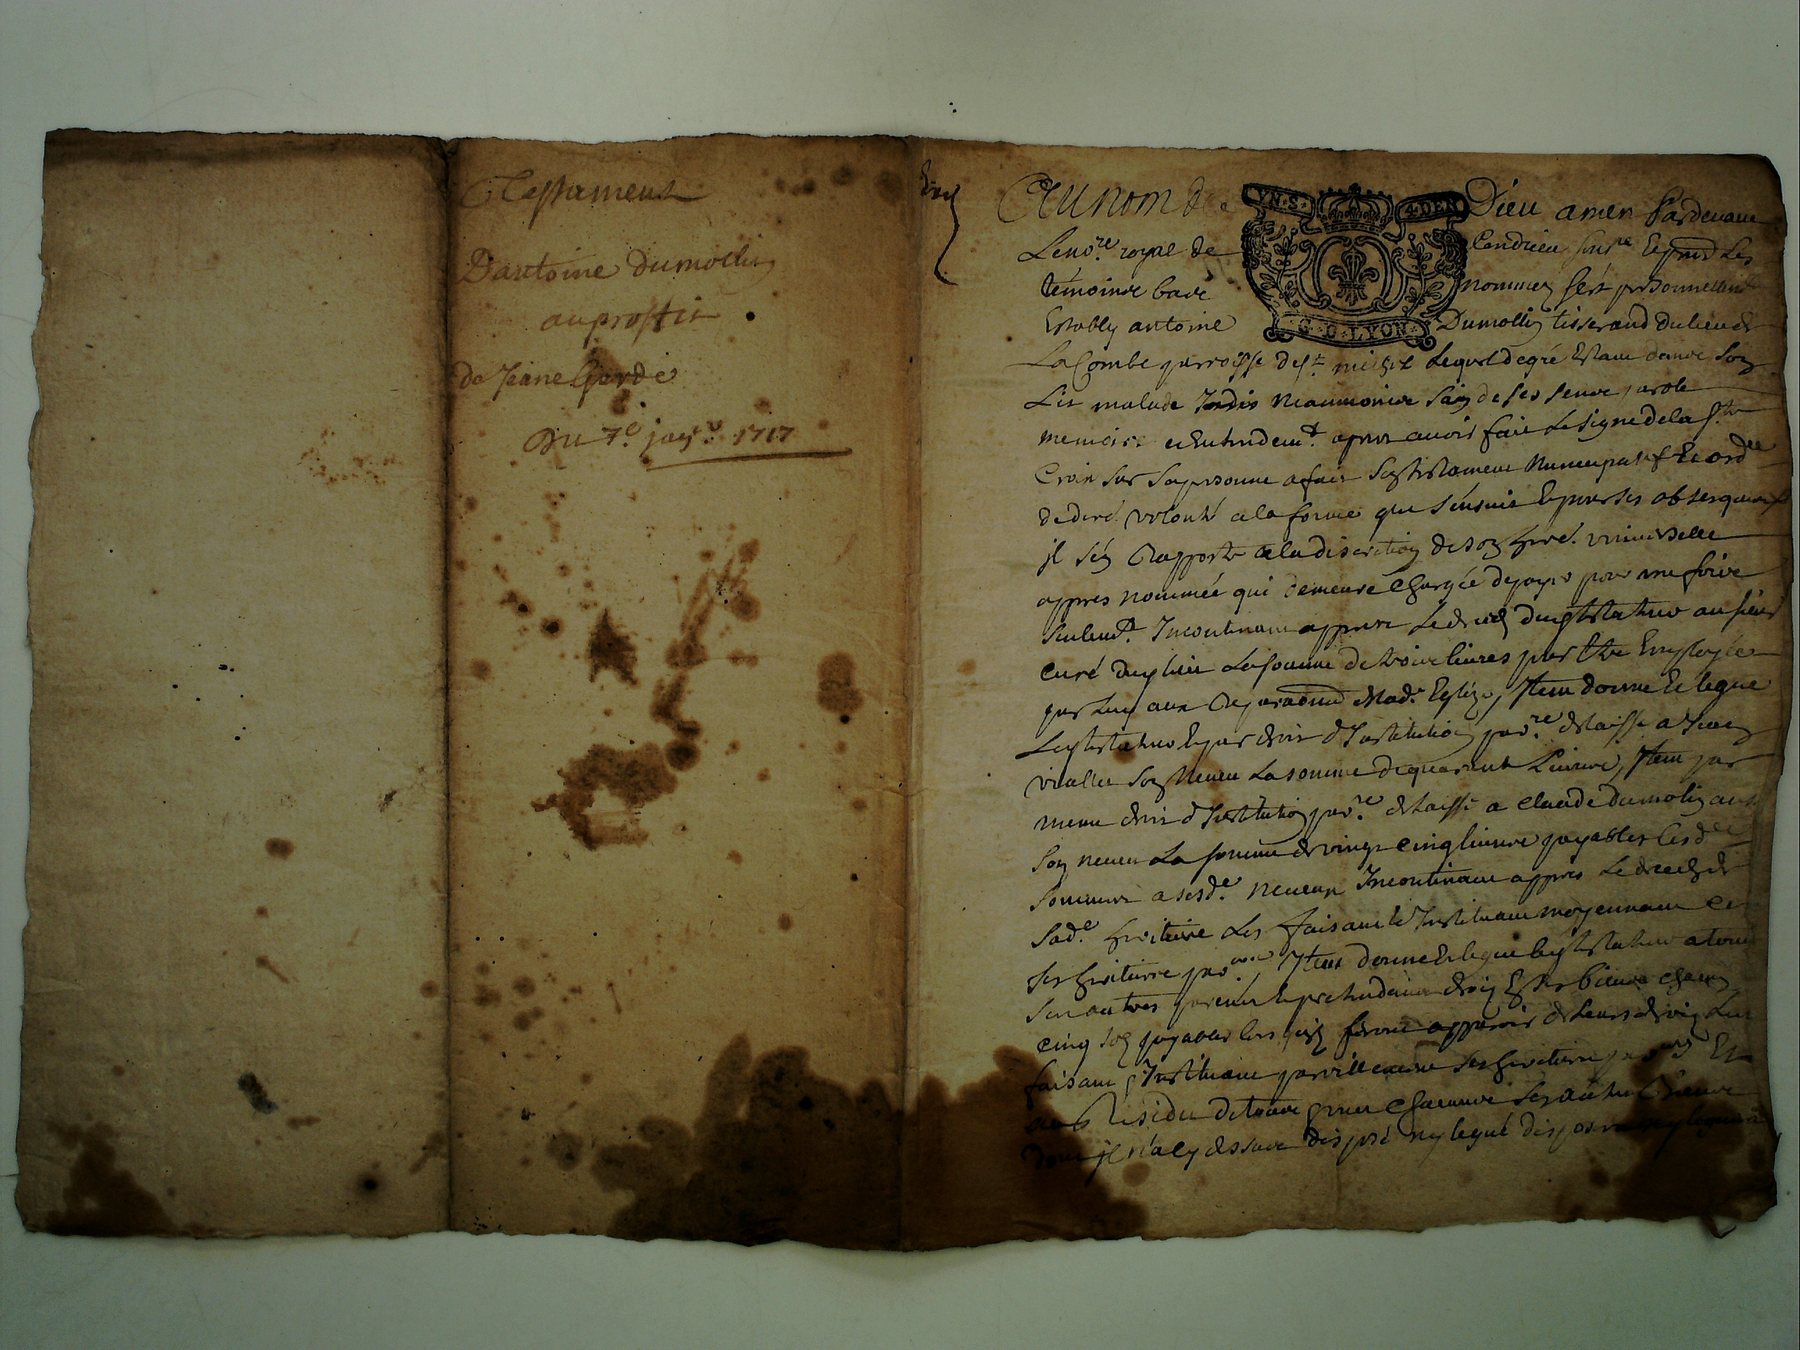 Testament
Dantoine dumollin
au proffit
de Jeane Gerde
Du 7e janv.r 1717
Au nom de Dieu amen Pardevant
Le no.re royal de Condrieu soubs.ne et present Les
témoins bas nommez s'est personnellem.t
Estably antoine Dumollin tisserand du lieu de
La Combe parroisse de s.t michel Lequel de gré Estant dans son
Lit malade Indis neaumoins sain de ses sens parole
memoire et Entendem.t apres avoir fait Le signe de la s.te
Croix sur sa personne a fait son testament nuncupatif et ord.re
de der.e volonté a la forme que s'ensuit Et pour ses obseques
il s'en Rapporte a la discretion de son herit. universelle
appres nommée qui demeure chargée de payer pour une foire
seulem.t Incontinant appres Le deces dud testateur au sieur
curé dud lieu La somme de trois livres pour Estre Employée
par Luy aux Reparations de lad.e Eglize, Item donne Et legue
Led testateur Et par droit d'Institution par.re delaisse a Jean
viallet son neveu La somme de quarante Livres, Item par
meme droit d'Institution par.re delaisse a claude dumolin aussy
son neveu La somme de vingt cinq livres payables Lesd.es
sommes a sesd.s neveux Incontinant appres Le deces de
sad.e heritiere Les faisant et Instituant moyennant ce
ses heritiers par.ers, Item donne Et legue led testateur a tous
ses autres parents Et pretendants droit En ses biens chacun
cinq sols payables lors qu'ils feront apparoir de Leurs droits Les
faisant et Instituant pareillement ses heritiers par.ers Et
au Residu de tous et uns chacuns ses autres Biens
dont il n'a cy dessus disposé ny legué